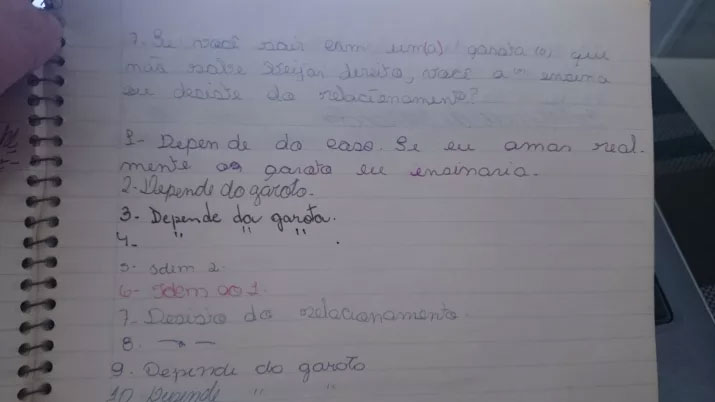 7. Se você sair com um(a) garota(o), que
não sabe beijar direito, você a(o) ensina
ou desiste do relacionamento?
1- Depende do caso. Se eu amar real-
mente o garoto eu ensinaria.
2- Depende do garoto.
3. Depende da garota.
4. " " " .
5. Idem 2.
6- Idem ao 1.
7. Desisto do relacionamento.
8. —"—
9. Depende do garoto
10. Depende " "